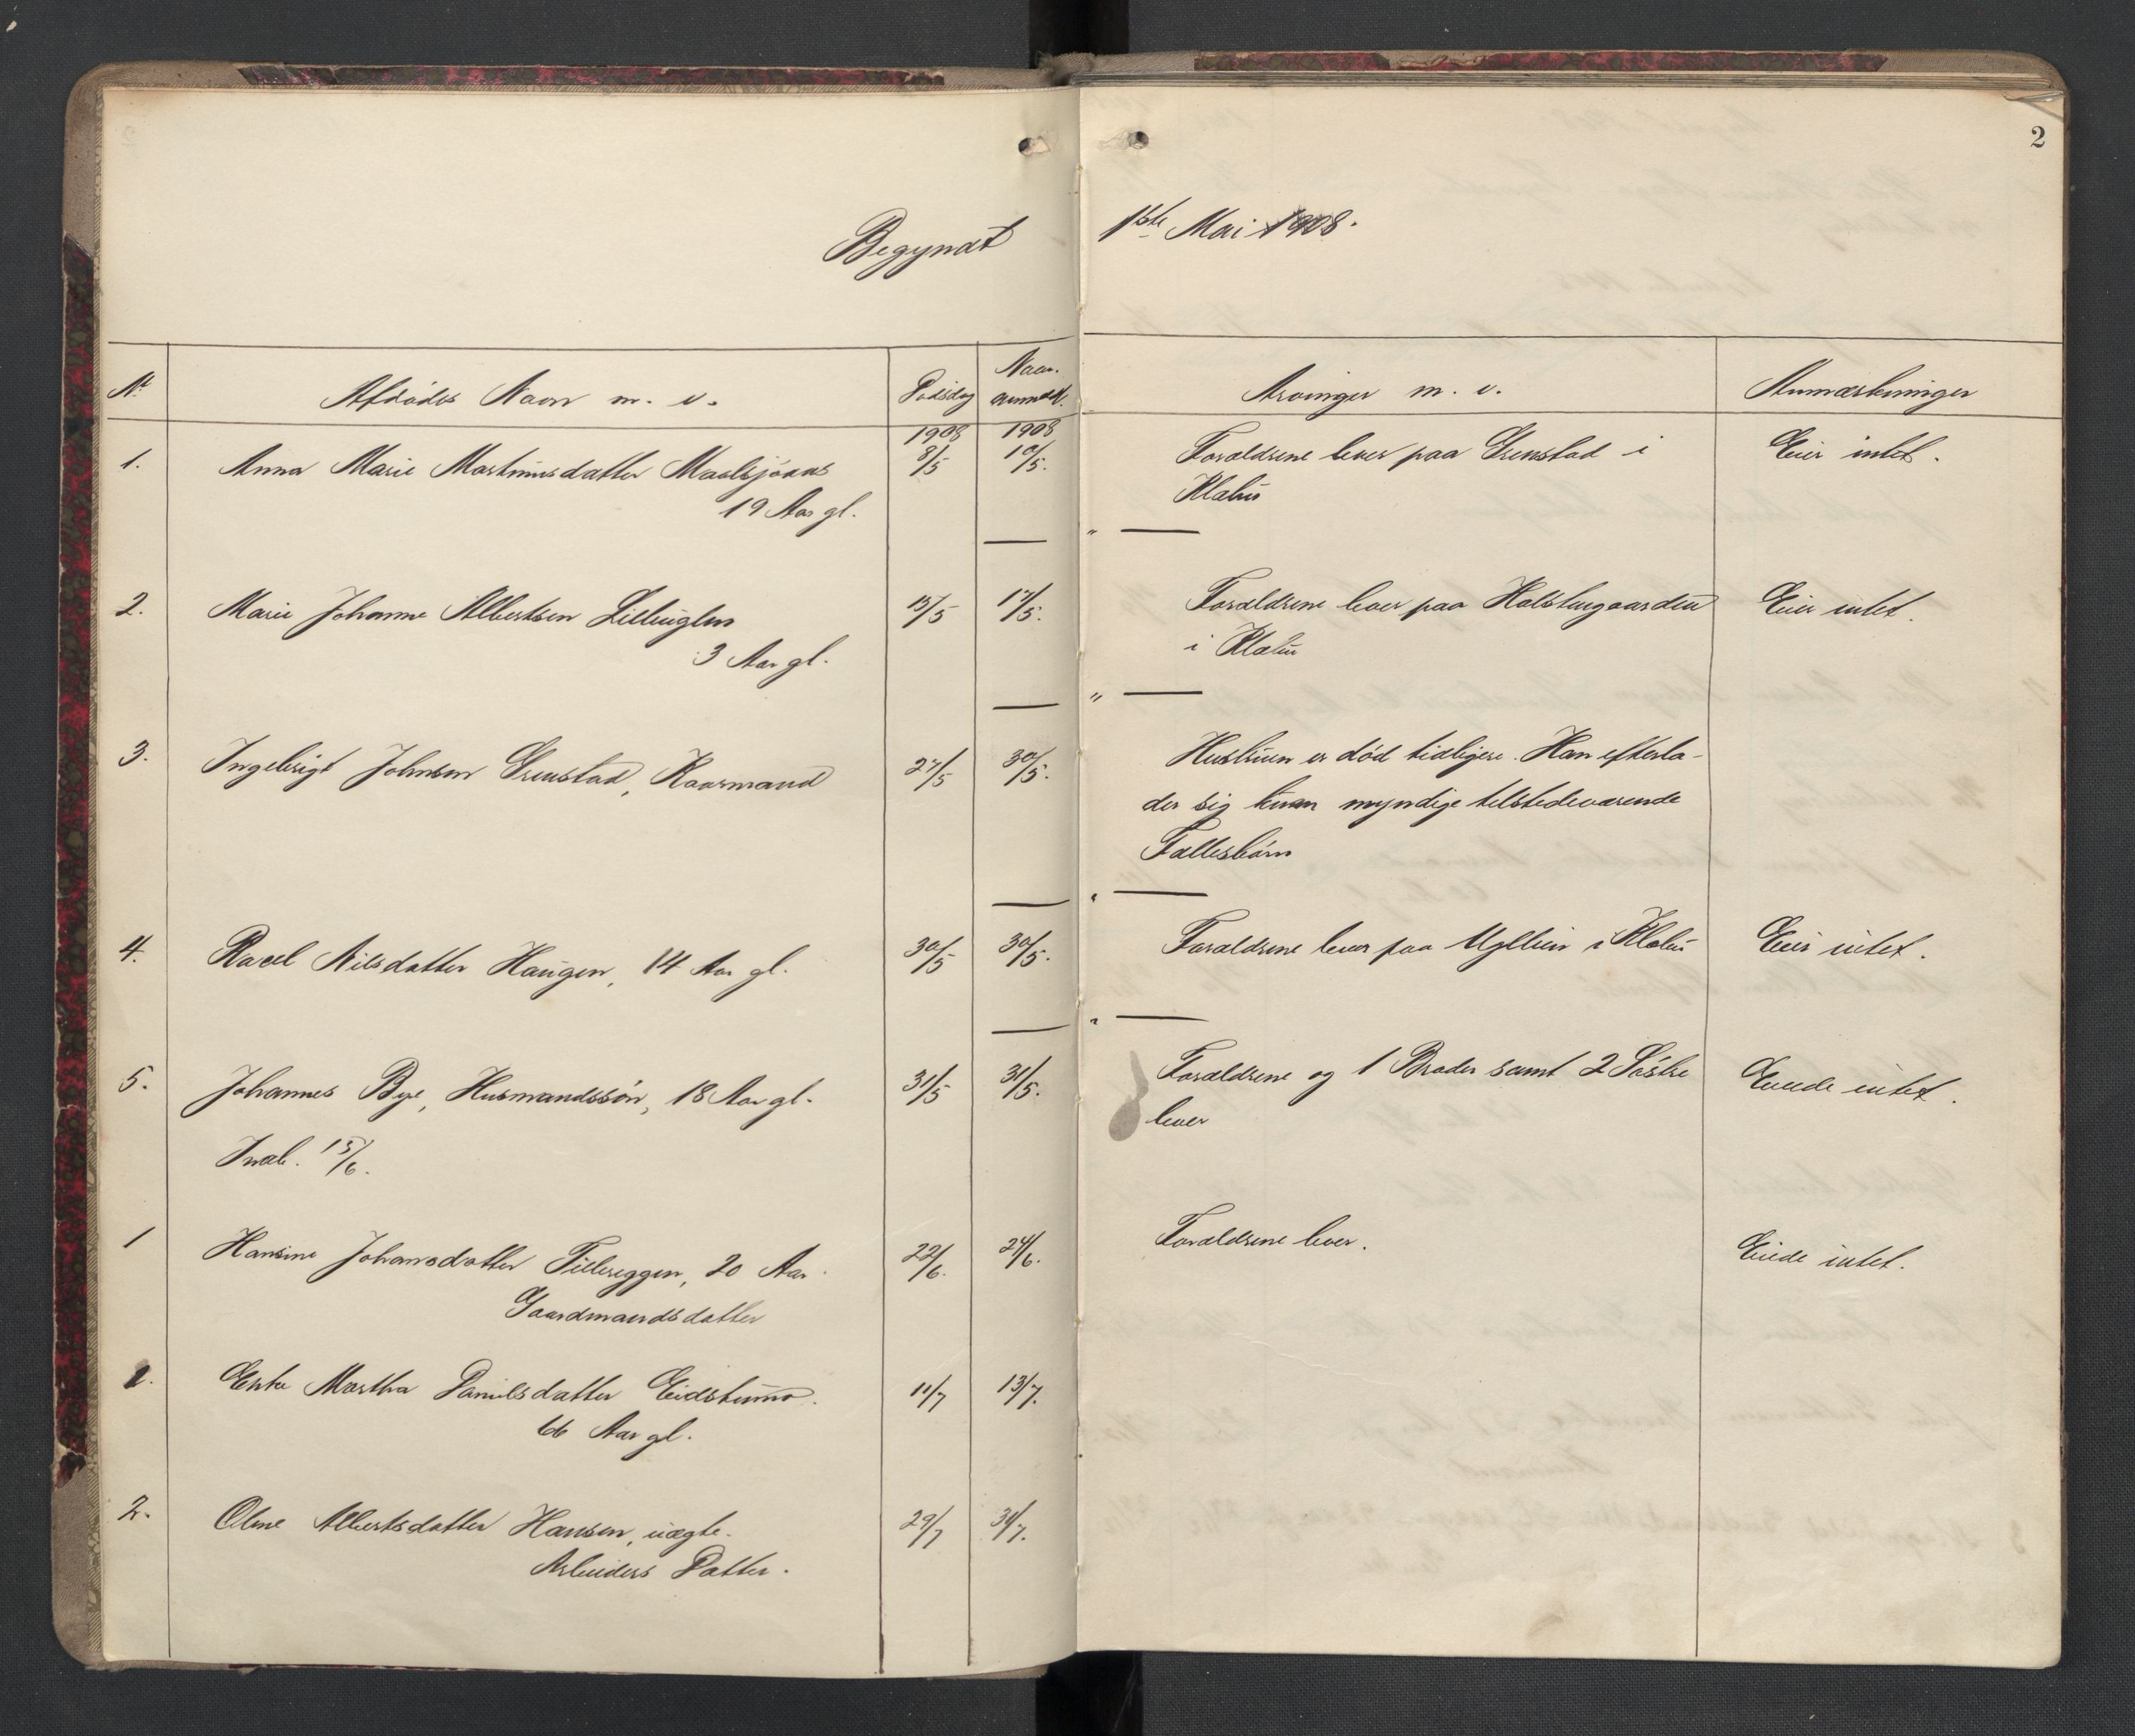 2
Begyndt 1ste Mai 1908.
Nr. Afdødes Navn m. v. Dødsdag Naar anmeldt. Arvinger m. v. Anmærkninger
1908 1908
1. Anna Marie Martinusdatter Maalsjøaas 8/5 10/5. Forældrene lever paa Grenstad i Eier intet.
19 Aar gl. Klæbu
— " —
2. Marie Johanne Albertsen Lilleuglen 15/5 17/5. Forældrene lever paa Halstengaarden Eier intet.
3 Aar gl. i Klæbu
— " —
3. Ingebrigt Johnsen Grenstad, Kaarmand 27/5 30/5. Hustruen er død tidligere. Han efterla-
der sig kun myndige tilstedeværende
Fællesbørn
— " —
4. Racel Nilsdatter Haugen, 14 Aar gl. 30/5 30/5. Forældrene lever paa Ugllien i Klæbu Eier intet.
— " —
5. Johannes Bye, Husmandssøn, 18 Aar gl. 31/5 31/5. Forældrene og 1 Broder samt 2 Søstre Eiede intet.
lever
Indb. 15/6.
1 Hansine Johansdatter Tillereggen, 20 Aar. 22/6. 24/6. Forældrene lever. Eiede intet.
Gaardmandsdatter
1. Enke Martha Danielsdatter Eidstumo. 11/7 13/7.
66 Aar gl.
2. Oline Albertsdatter Hansen, uægte. 29/7 31/7.
Arbeiders Datter.